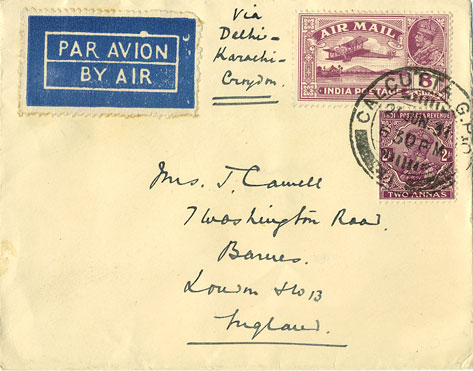 PAR AVION
BY AIR
Via
Delhi-
Karachi-
Croydon.
AIR MAIL
INDIA POSTAGE
CALCUTTA G.P.O.
6.30 PM
TWO ANNAS
Mrs. J. Cawell
7 Washington Road
Barnes.
London SW 13
England.